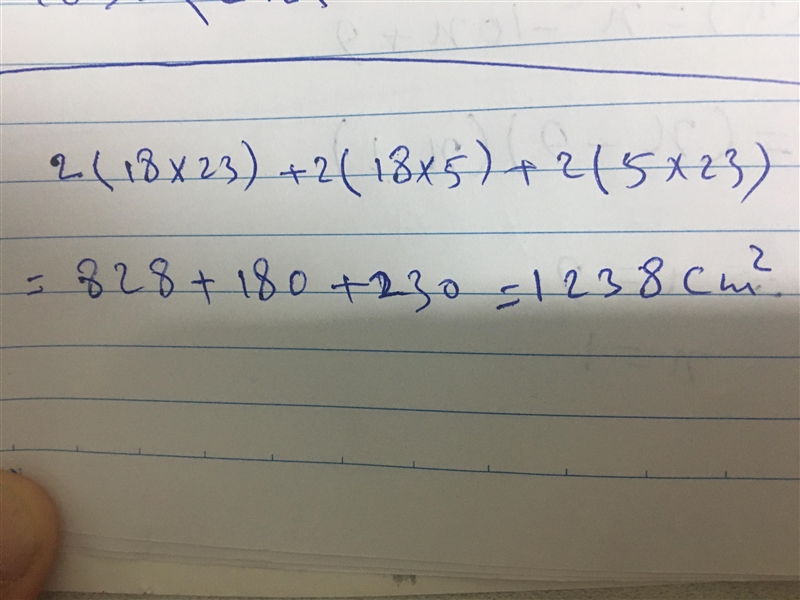 2(18×23)+2(18×5)+2(5×23)
=828+180+230=1238cm²